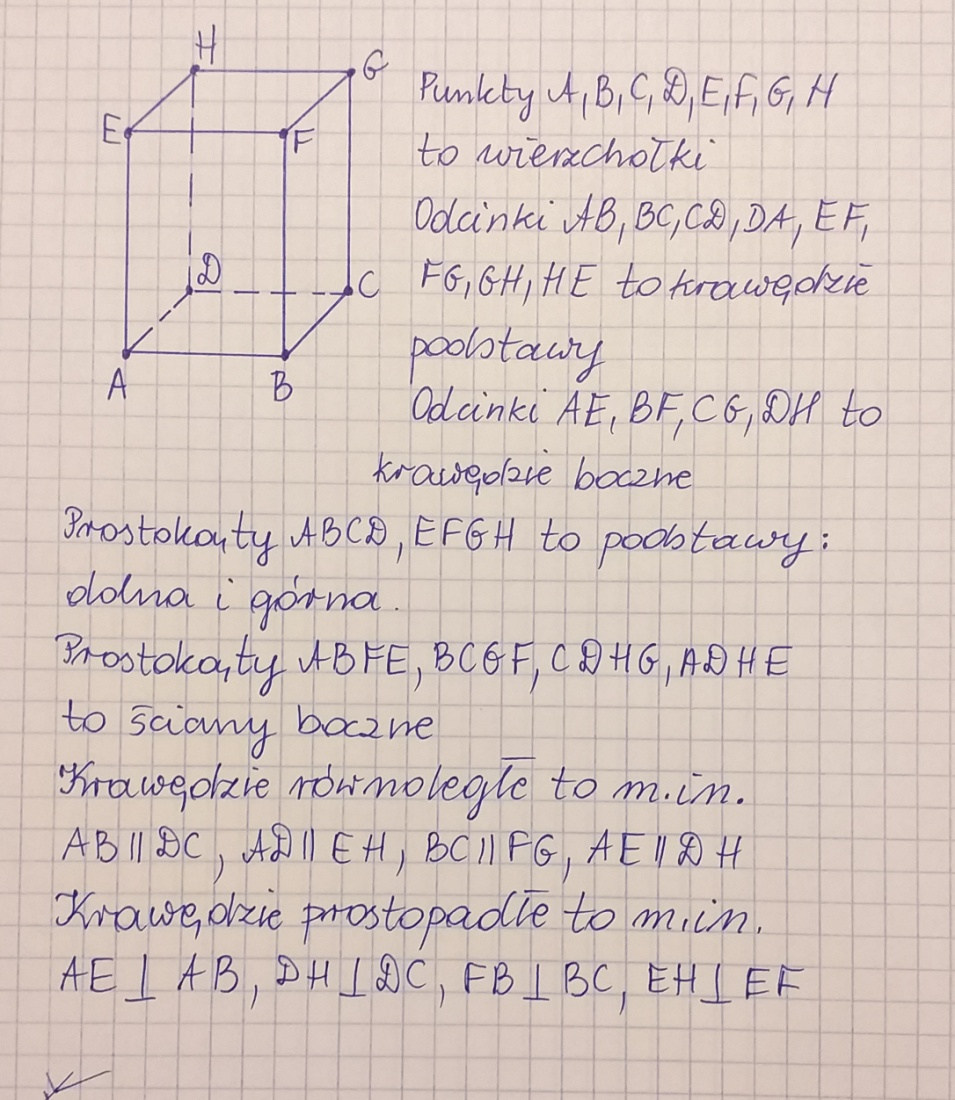 H
G
E
F
D
C
A
B
Punkty A, B, C, D, E, F, G, H
to wierzchołki
Odcinki AB, BC, CD, DA, EF,
FG, GH, HE to krawędzie
podstawy
Odcinki AE, BF, CG, DH to
krawędzie boczne
Prostokąty ABCD, EFGH to podstawy:
dolna i górna.
Prostokąty ABFE, BCGF, CDHG, ADHE
to ściany boczne
Krawędzie równoległe to m.in.
AB || DC, AD || EH, BC || FG, AE || DH
Krawędzie prostopadłe to m.in.
AE ⊥ AB, DH ⊥ DC, FB ⊥ BC, EH ⊥ EF